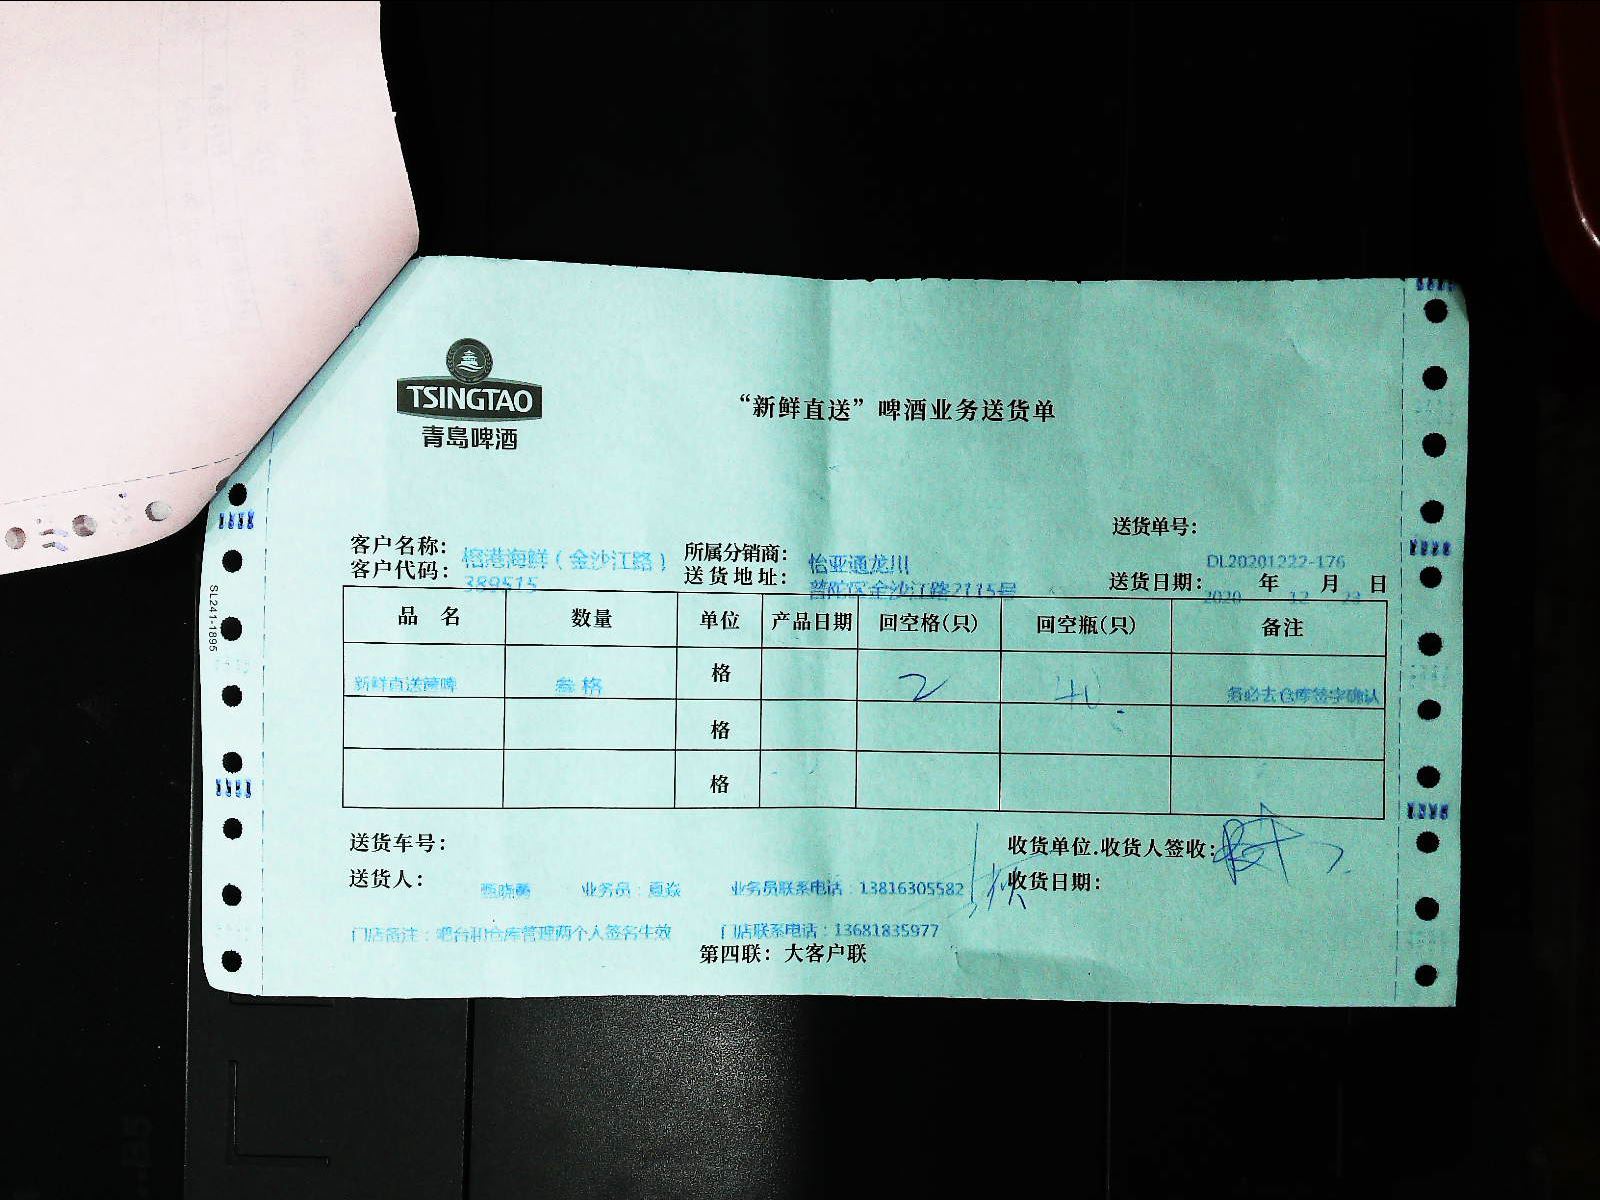 TSINGTAO
青岛啤酒
“新鲜直送”啤酒业务送货单
送货单号：
DL20201222-176
客户名称： 榕港海鲜（金沙江路） 所属分销商： 怡亚通龙川
客户代码： 389515 送货地址： 普陀区金沙江路2115号 送货日期： 2020 年 12 月 日
品 名 数量 单位 产品日期 回空格(只) 回空瓶(只) 备注
新鲜直送箱啤 叁格 格 2 务必去仓库签字确认
格
格
送货车号： 收货单位.收货人签收：
送货人： 晓勇 业务员： 业务员联系电话：13816305582 收货日期：
门店备注：吧台和仓库管理两个人签名生效 门店联系电话：13681835977
第四联：大客户联
SL241-1895